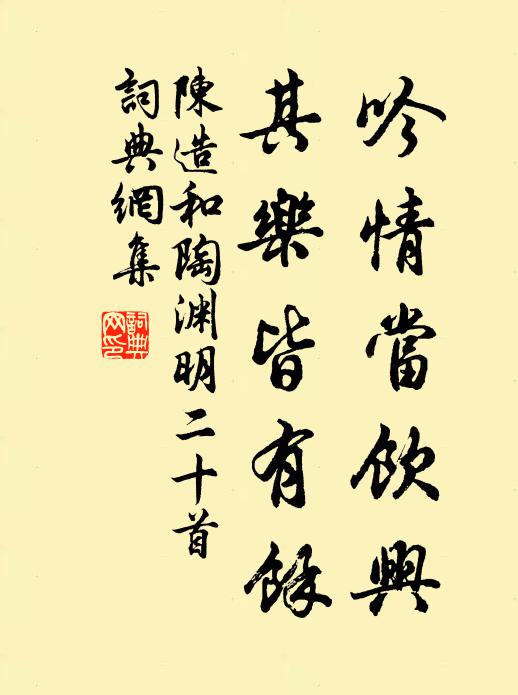 吟情當飲興
其樂皆有餘
陳造和陶淵明二十首
詞典網集
詞典
网印